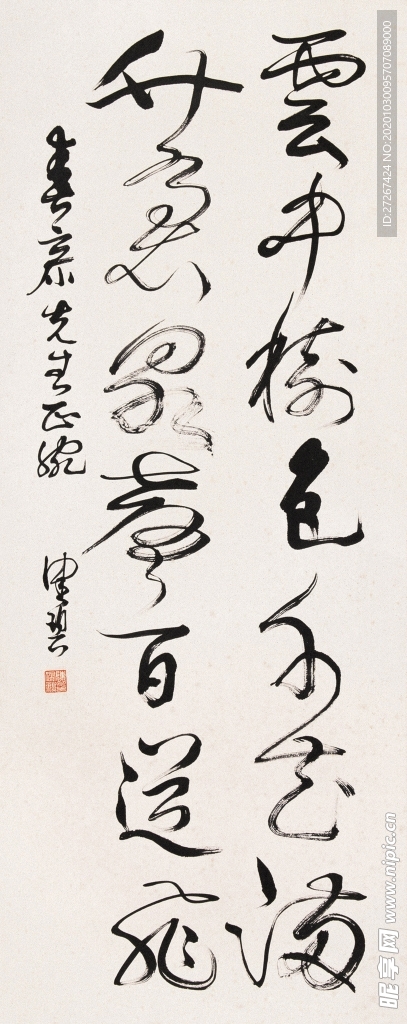 雲中樹色千花滿
竹裏泉聲百道飛
先生正腕
ID:27267424 NO:20201030095707089000
昵享网 www.nipic.cn